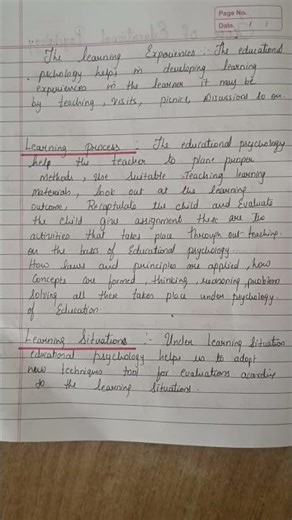 Page No.
Date
The learning Experiences :- The educational
pschology helps in developing learning
experiences in the learner it may be
by teaching, visits, picnics, Discussions so on.
Learning process :- The educational psychology
help the teacher to plane proper
methods, use suitable teaching learning
materials, look out at the learning
outcome, Recaptulate the child and Evaluate
the child give assignment these are the
activities that takes place through out teaching.
on the basis of Educational psychology.
How laws and principles are applied, how
concepts are formed, thinking, reasoning, problem
solving all these takes place under psychology
of Education.
Learning Situations :- Under learning situation
educational psychology helps us to adopt
new techniques tool for evaluations acording
to the learning situations.